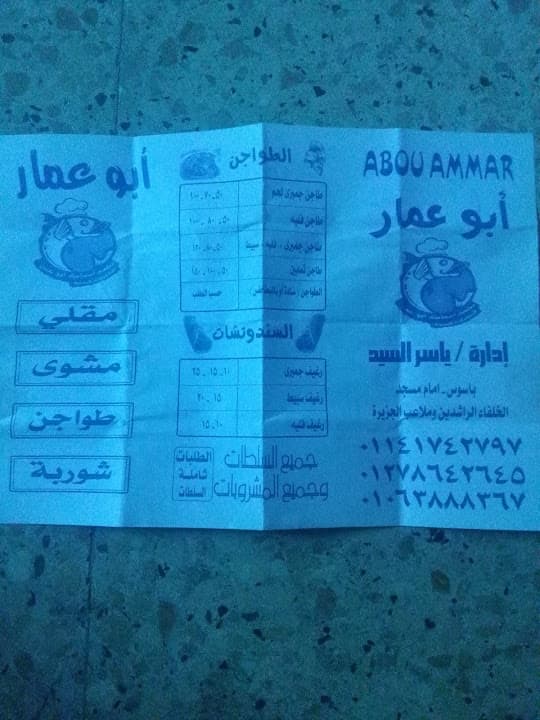 ABOU AMMAR
أبو عمار
إدارة / ياسر السيد
باسوس - امام مسجد
الخلفاء الراشدين وملاعب الجزيرة
٠١١٤١٧٤٢٧٩٧
٠١٢٧٨٦٤٢٦٤٥
٠١٠٦٣٨٨٨٣٦٧
الطواجن
طاجن جمبرى لهم ٥٠ - ٧٠ - ١٠٠
طاجن فليه ٥٠ - ٨٠ - ١٠٠
طاجن جمبرى ، فليه ، سبيط ٥٠ - ٨٠ - ١٢٠
طاجن ثعابين ٥٠ - ١٠٠ - ١٥٠
الطواجن حسب الطلب
السندوتشات
رغيف جمبرى ١٠ - ١٥ - ٢٥
رغيف سبيط ١٥ - ٢٠
رغيف فليه ١٠ - ١٥
جميع السلطات
وجميع المشروبات
الطلبات
شاملة
السلطات
أبو عمار
مقلي
مشوى
طواجن
شوربة